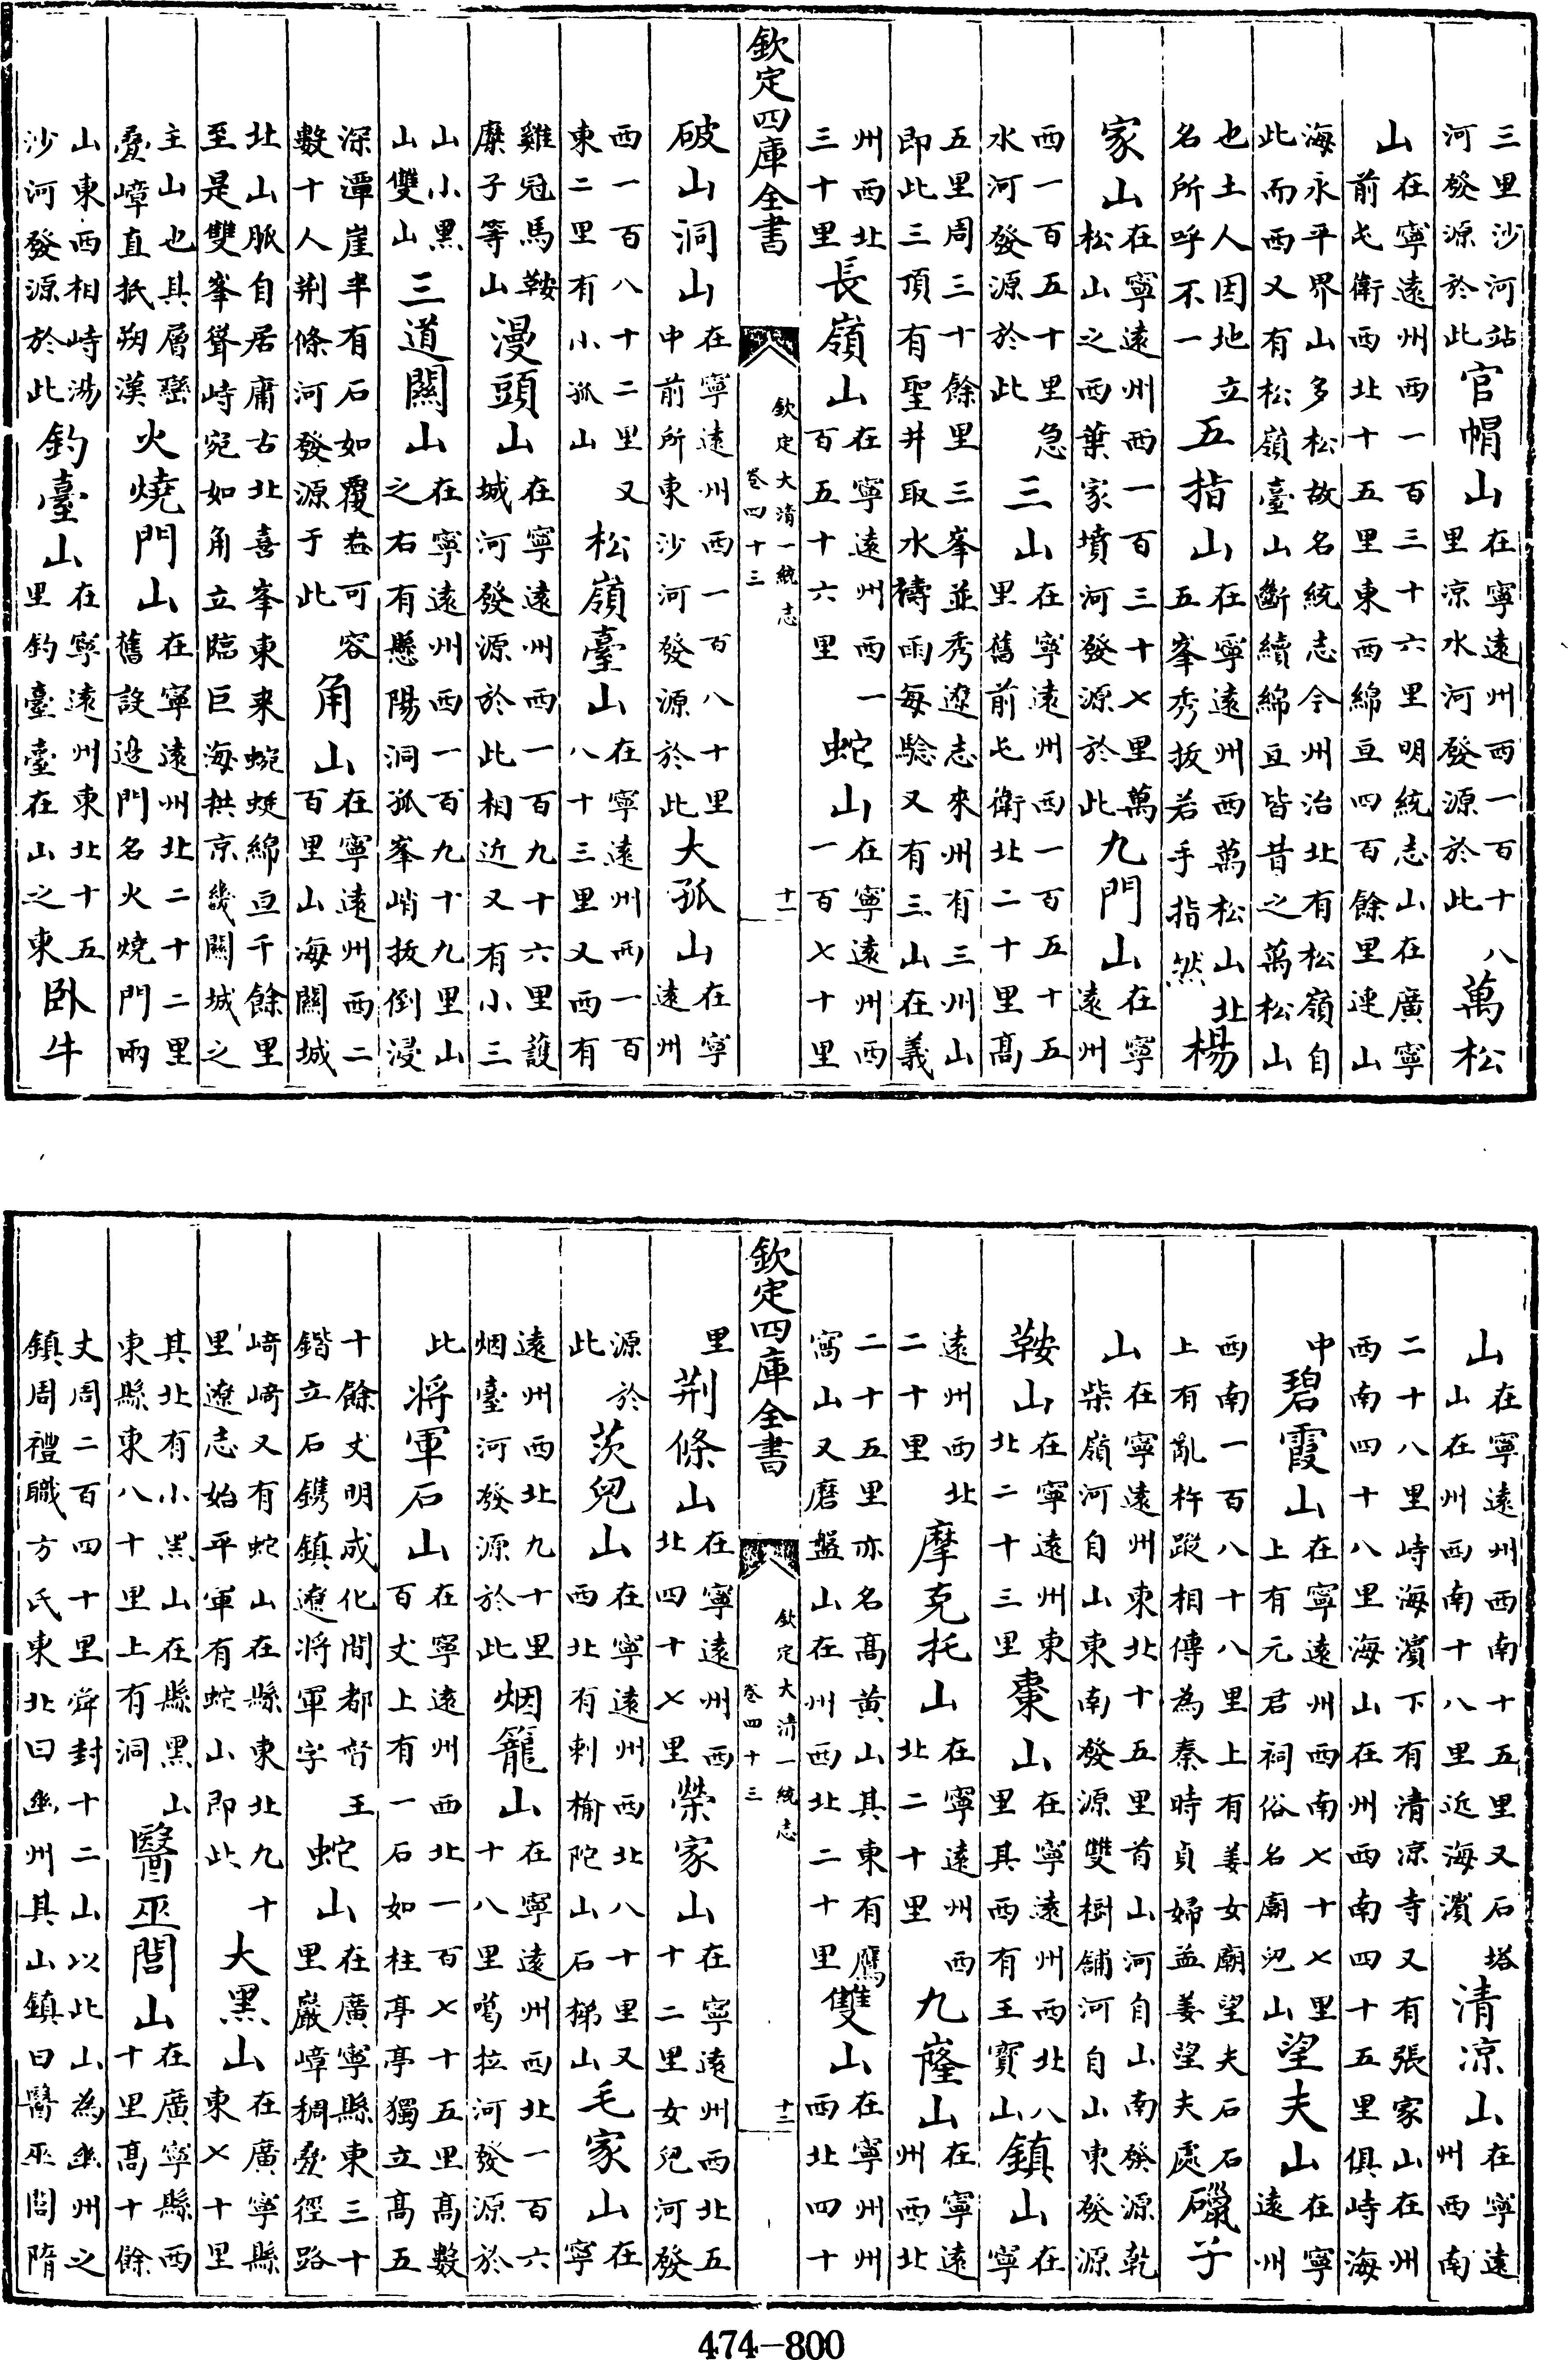 三里沙河站河發源於此官帽山在寧遠州西一百十八里涼水河發源於此萬松
山在寧遠州西一百三十六里明統志山在廣寧前屯衛西北十五里東西綿亘四百餘里連山
海永平界山多松故名統志今州治北有松嶺自此而西又有松嶺臺山斷續綿亘皆昔之萬松山
也土人因地立名所呼不一五指山在寧遠州西萬松山北五峯秀拔若手指然楊
家山在寧遠州西一百三十七里萬松山之西葉家墳河發源於此九門山在寧遠州
西一百五十里急水河發源於此三山在寧遠州西一百五十五里舊前屯衛北二十里高
五里周三十餘里三峯並秀遼志來州有三州山即此三頂有聖井取水禱雨每驗又有三山在義
州西北三十里長嶺山在寧遠州西一百五十六里蛇山在寧遠州西一百七十里
欽定四庫全書
欽定大清一統志
卷四十三
十一
破山洞山在寧遠州西一百八十里中前所東沙河發源於此大孤山在寧遠州
西一百八十二里又東二里有小孤山松嶺臺山在寧遠州西一百八十三里又西有
雞冠馬鞍糜子等山漫頭山在寧遠州西一百九十六里護城河發源於此相近又有小三
山小黑山雙山三道關山在寧遠州西一百九十九里山之右有懸陽洞孤峯峭拔倒浸
深潭崖半有石如覆盎可容數十人荆條河發源于此角山在寧遠州西二百里山海關城
北山脈自居庸古北喜峯東来蜿蜒綿亘千餘里至是雙峯聳峙宛如角立臨巨海拱京畿關城之
主山也其層巒疊嶂直抵朔漠火燒門山在寧遠州北二十二里舊設邉門名火燒門兩
山東西相峙湯沙河發源於此釣臺山在寧遠州東北十五里釣臺臺在山之東卧牛
山在寧遠州西南十五里又石塔山在州西南十八里近海濱清凉山在寧遠州西南
二十八里峙海濱下有清凉寺又有張家山在州西南四十八里海山在州西南四十五里俱峙海
中碧霞山在寧遠州西南七十七里上有元君祠俗名廟兒山望夫山在寧遠州
西南一百八十八里上有姜女廟望夫石石上有亂杵蹤相傳為秦時貞婦孟姜望夫處子
山在寧遠州東北十五里首山河自山南發源乾柴嶺河自山東南發源雙樹舖河自山東發源
鞍山在寧遠州東北二十三里棗山在寧遠州西北八里其西有王寶山鎮山在寧
遠州西北二十里摩克托山在寧遠州西北二十里九窿山在寧遠州西北
二十五里亦名高黄山其東有鷹窩山又磨盤山在州西北二十里雙山在寧州西北四十
欽定四庫全書
欽定大清一統志
卷四十三
十二
里荆條山在寧遠州西北四十七里榮家山在寧遠州西北五十二里女兒河發
源於此茨兒山在寧遠州西北八十里又西北有刺榆陀山石梯山毛家山在寧
遠州西北九十里烟臺河發源於此烟籠山在寧遠州西北一百六十八里噶拉河發源於
此將軍石山在寧遠州西北一百七十五里高數百丈上有一石如柱亭亭獨立高五
十餘丈明成化間都督王鍇立石鐫鎮遼將軍字蛇山在廣寧縣東三十里巖嶂稠疊徑路
﨑﨑又有蛇山在縣東北九十里遼志始平軍有蛇山即此大黑山在廣寧縣東七十里
其北有小黑山在縣黑山東縣東八十里上有洞醫巫閭山在廣寧縣西十里高十餘
丈周二百四十里舜封十二山以此山為幽州之鎮周禮職方氏東北曰幽州其山鎮曰醫巫閭隋
474-800